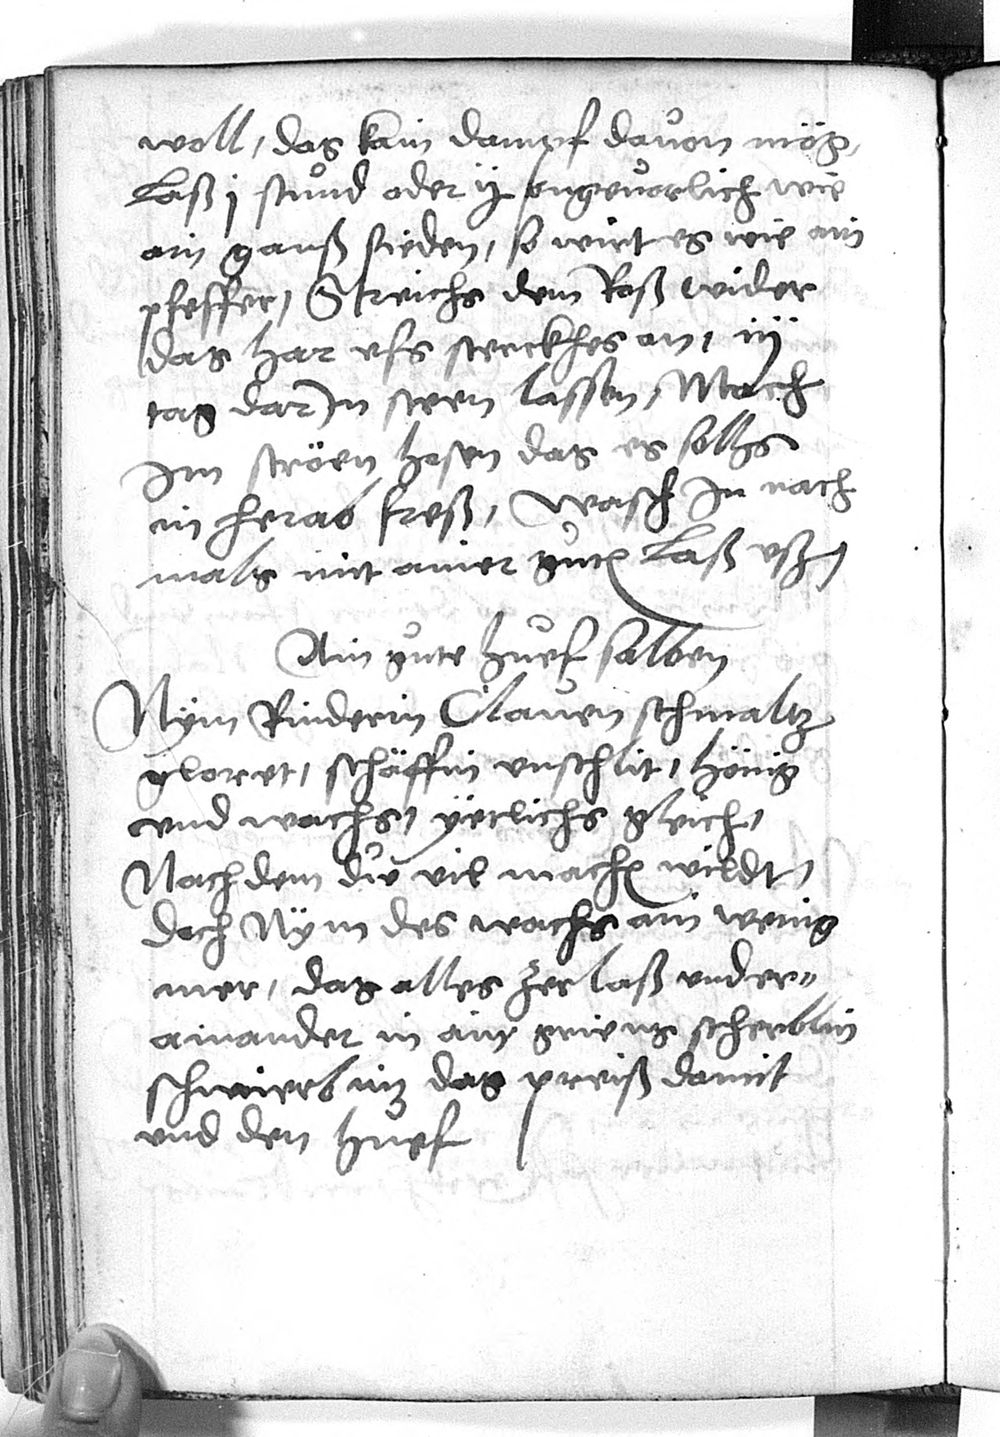 woll, das kain dampf dauon mög,
Laß j stund oder ij ongeuorlich wie
ain ganß sieden, so wirt es wie ain
pfeffer, Streichs dem Roß wider
das har vfs sterckhes an, iij
tag dar In steen lassen, Mach
Im ströen hosen das es sollhs
nit herab freß, Wasch In nach
mals mit ainer guten Laß vß,
Ain gute huef salben
Nÿm Rinderin Clauen schmaltz
gloret, schäffin vnschlit, hönig
vnd wachs, yetlichs gleich,
Nach dem du vil machen wildt,
doch Nÿm des wachs ain wenig
mer, das alles zerlaß vnder-
ainander in ain scherblin
schmierb im das preiß damit
vnd den huef